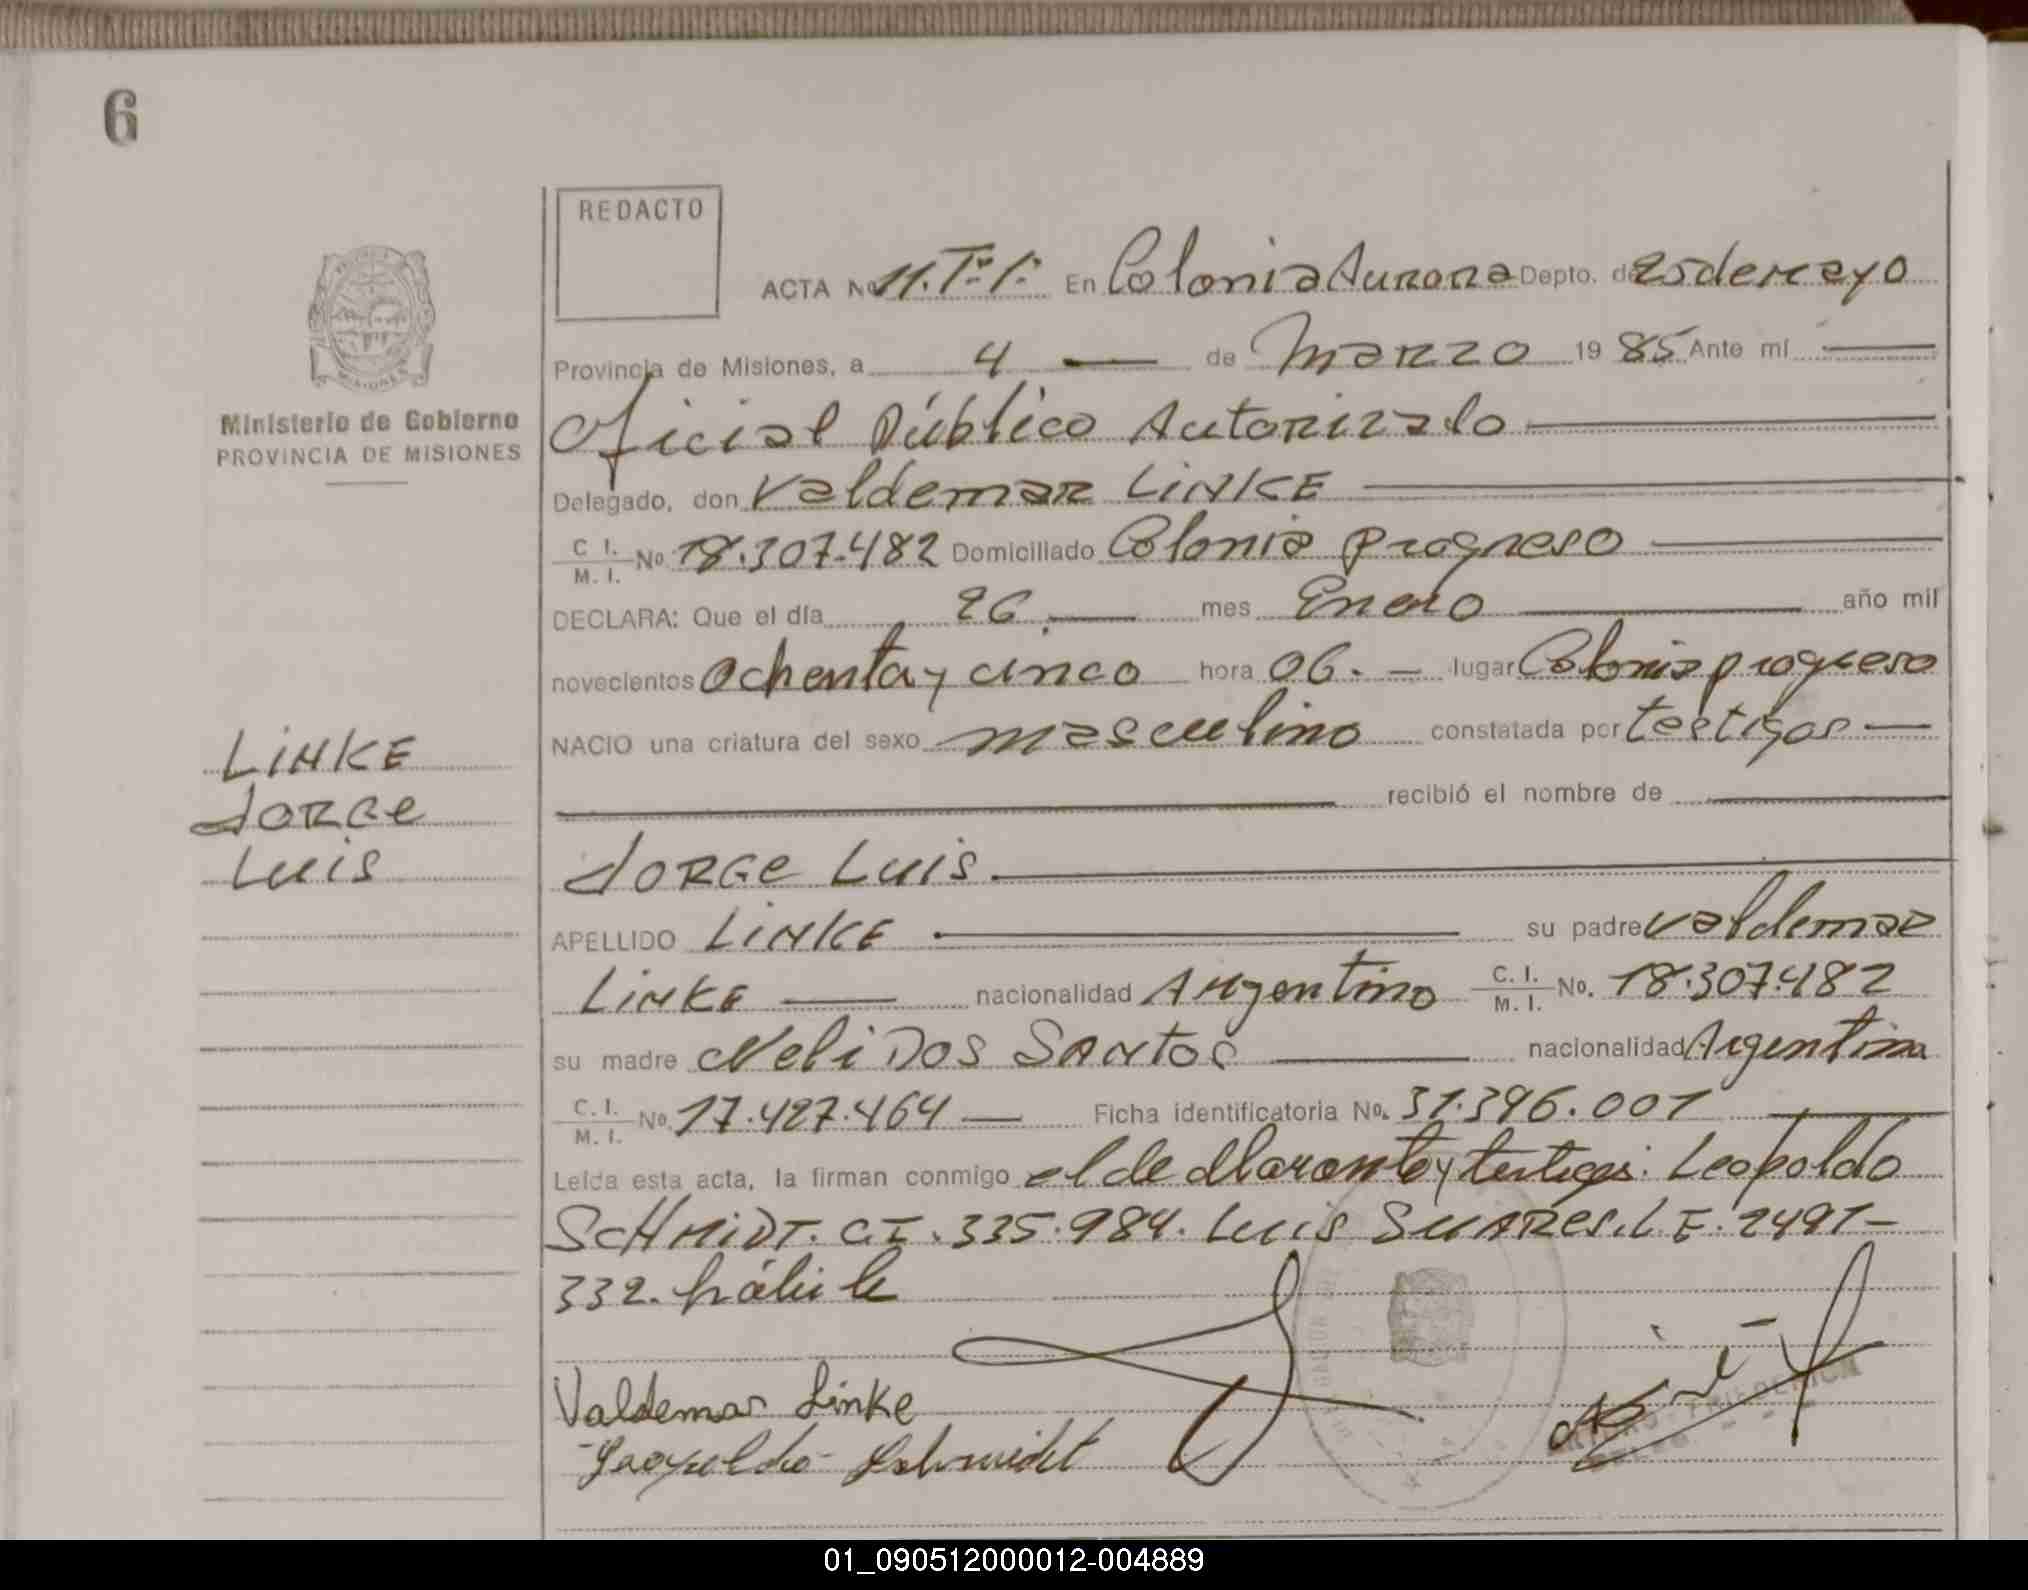 6
REDACTO
ACTA No 11.Tº.1º. En Colonia Aurora Depto. de 25 de Mayo
Provincia de Misiones, a 4 de Marzo 1985 Ante mí
Ministerio de Gobierno
PROVINCIA DE MISIONES
Oficial Público Autorizado
Delegado, don Valdemar LINKE
C. I. / M. I. No. 18.307.482 Domiciliado Colonia progreso
DECLARA: Que el día 26. mes Enero año mil
novecientos ochenta y cinco hora 06. lugar Colonia progreso
NACIO una criatura del sexo masculino constatada por testigos
recibió el nombre de
LINKE
JORGE
LUIS
JORGE LUIS.
APELLIDO LINKE su padre Valdemar
LINKE nacionalidad Argentino C. I. / M. I. No. 18.307.482
su madre Neli DOS SANTOS nacionalidad Argentina
C. I. / M. I. No. 17.427.464 Ficha identificatoria No. 31.396.001
Leída esta acta, la firman conmigo el declarante y testigos: Leopoldo
SCHMIDT. C.I. 335.984. Luis SUARES. L.E. 2491-
332. hábile
Valdemar Linke
Leopoldo Schmidt
01_090512000012-004889